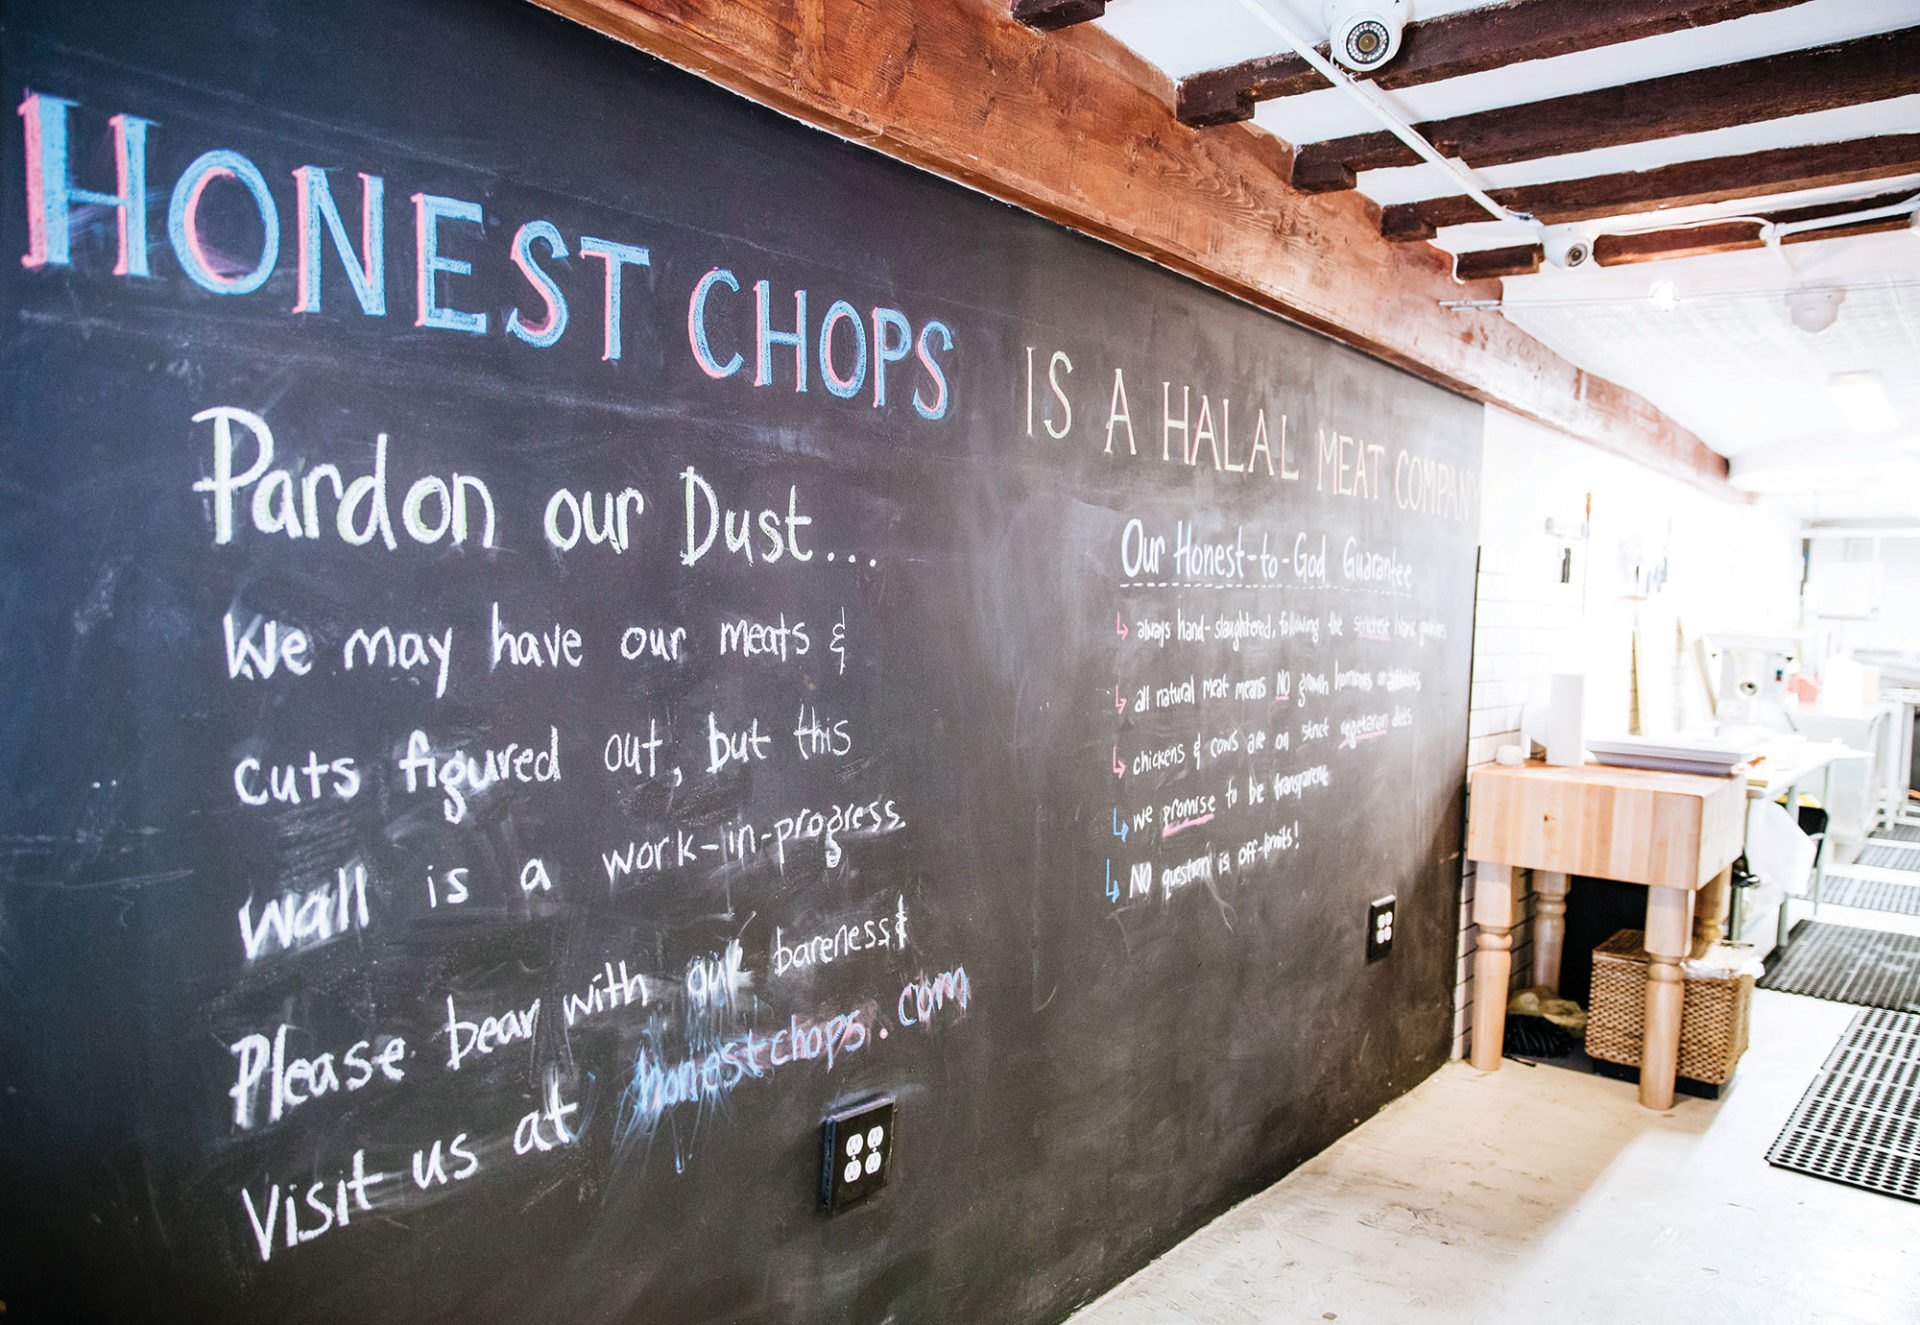 HONEST CHOPS IS A HALAL MEAT COMPANY
Pardon our Dust...
We may have our meats &
cuts figured out, but this
wall is a work-in-progress
Please bear with our bareness &
Visit us at honestchops.com
Our Honest-to-God Guarantee
always hand-slaughtered, following the strictest
all natural meat means NO growth hormones or antibiotics
chickens & cows are on strict vegetarian diets
we promise to be transparent
NO question is off-limits!